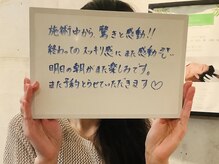 施術中から 驚きと感動!!
終わってのスッキリ感にまた感動
明日の朝がまた楽しみです。
また予約とらせていただきます♡